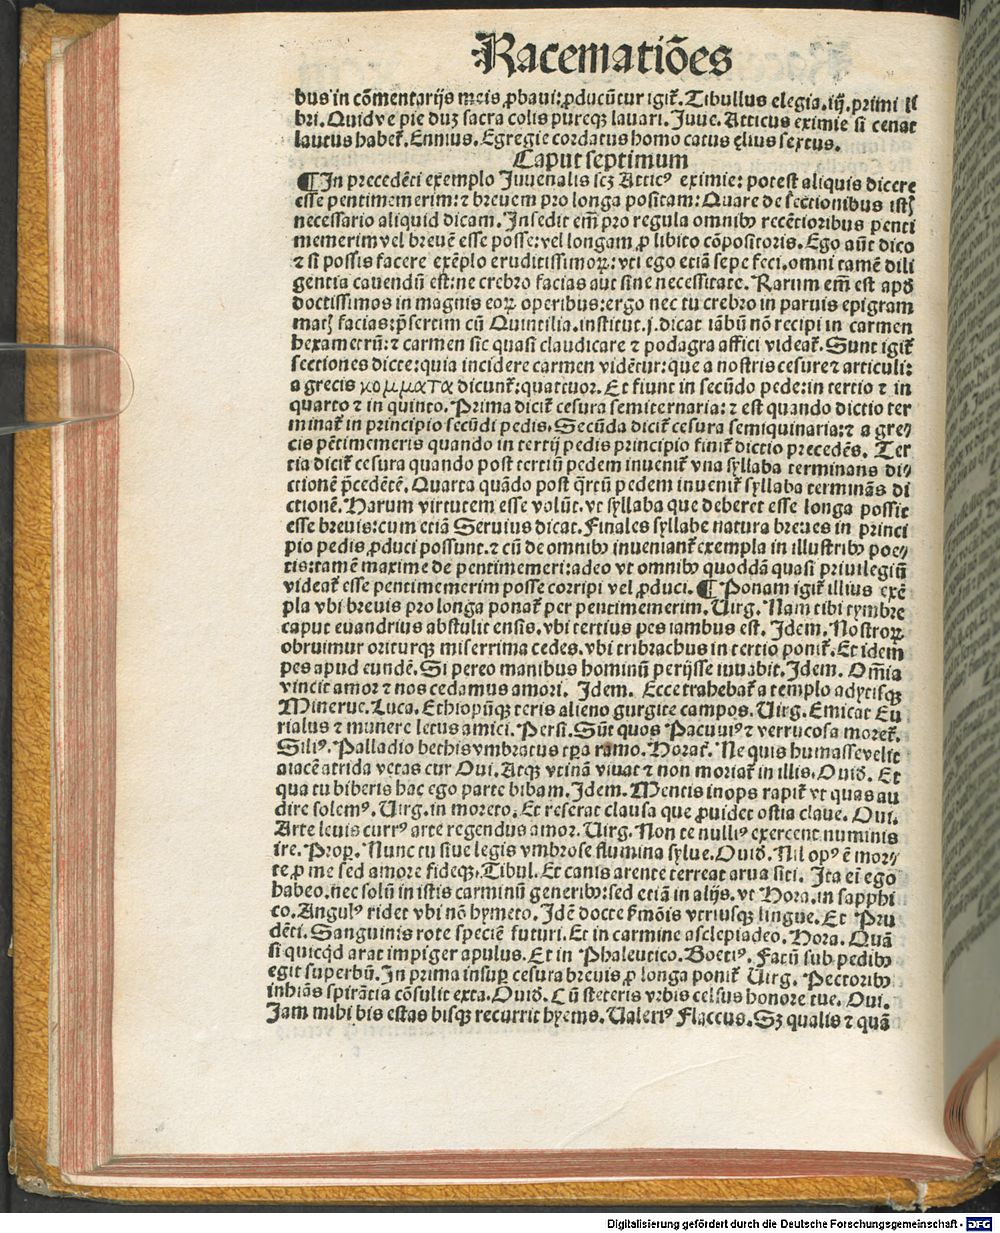 Racematiões
bus in cõmentarijs meis ꝓbaui: ꝓducũtur igit᷑. Tibullus elegia. iij. primi li
bri. Quidve pie duꝫ sacra colis pureqꝫ lauari. Juue. Atticus eximie si cenat
lautus habet᷑. Ennius. Egregie cordatus homo catus ęlius sextus.
Caput septimum
¶ In precedẽti exemplo Juuenalis scꝫ Atticꝰ eximie: potest aliquis dicere
esse pentimemerim: ⁊ breuem pro longa positam: Quare de sectionibus istꝭ
necessario aliquid dicam. Insedit em̃ pro regula omnibꝫ recẽtioribus penti
memerim vel breuẽ esse posse: vel longam ꝓ libito cõpositoris. Ego aũt dico
⁊ si possis facere exẽplo eruditissimoꝝ: vti ego etiã sepe feci. omni tamẽ dili
gentia cauendũ est: ne crebro facias aut sine necessitate. Rarum em̃ est apd̃
doctissimos in magnis eoꝝ operibus: ergo nec tu crebro in paruis epigram
matꝭ facias: p̃sertim cũ Quintilia. institut. j. dicat iãbũ nõ recipi in carmen
hexametrũ: ⁊ carmen sic quasi claudicare ⁊ podagra affici videat᷑. Sunt igit᷑
sectiones dicte: quia incidere carmen vidẽtur: que a nostris cesure ⁊ articuli:
a grecis κομματα dicunt᷑: quattuor. Et fiunt in secũdo pede: in tertio ⁊ in
quarto ⁊ in quinto. Prima dicit᷑ cesura semiternaria: ⁊ est quando dictio ter
minat᷑ in principio secũdi pedis. Secũda dicit᷑ cesura semiquinaria: ⁊ a gre⸗
cis pẽtimemeris quando in tertij pedis principio finit᷑ dictio precedẽs. Ter
tia dicit᷑ cesura quando post tertiũ pedem inuenit᷑ vna syllaba terminans di⸗
ctionẽ p̃cedẽtẽ. Quarta quãdo post q̃rtũ pedem inuenit᷑ syllaba terminãs di
ctionẽ. Harum virtutem esse volũt. vt syllaba que deberet esse longa possit
esse breuis: cum etiã Seruius dicat. Finales syllabe natura breues in princi
pio pedis ꝓduci possunt. ⁊ cũ de omnibꝫ inueniant᷑ exempla in illustribꝫ poe⸗
tis: tamẽ maxime de pentimemeri: adeo vt omnibꝫ quoddã quasi priuilegiũ
videat᷑ esse pentimemerim posse corripi vel ꝓduci. ¶ Ponam igit᷑ illius exẽ
pla vbi breuis pro longa ponat᷑ per pentimemerim. Uirg. Nam tibi tymbre
caput euandrius abstulit ensis. vbi tertius pes iambus est. Idem. Nostroꝝ
obruimur oriturqꝫ miserrima cedes. vbi tribrachus in tertio ponit᷑. Et idem
pes apud eundẽ. Si pereo manibus hominũ perijsse iuuabit. Idem. Om̃ia
vincit amor ⁊ nos cedamus amori. Idem. Ecce trahebat᷑ a templo adytisqꝫ
Minerue. Luca. Ethiopũqꝫ teris alieno gurgite campos. Uirg. Emicat Eu
rialus ⁊ munere letus amici. Persi. Sũt quos Pacuuiꝰ ⁊ verrucosa moret᷑.
Siliꝰ. Palladio bethis vmbratus tꝑa ramo. Horat᷑. Ne quis humasse velit
aiacẽ atrida vetas cur Oui. Atqꝫ vtinã viuat ⁊ non moriat᷑ in illis. Ouid̃. Et
qua tu biberis hac ego parte bibam. Idem. Mentis inops rapit᷑ vt quas au
dire solemꝰ. Uirg. in moreto. Et reserat clausa que ꝓuidet ostia claue. Oui.
Arte leuis currꝰ arte regendus amor. Uirg. Non te nulliꝰ exercent numinis
ire. Proꝑ. Nunc tu siue legis vmbrose flumina sylue. Ouid̃. Nil opꝰ ẽ mor⸗
te ꝓ me sed amore fideqꝫ. Tibul. Et canis arente terreat arua siti. Ita ei ego
habeo. nec solũ in istis carminũ generibꝫ: sed etiã in alijs. vt Hora. in sapphi
co. Angulꝰ ridet vbi nõ hymeto. Idẽ docte s̃mõis vtriusqꝫ lingue. Et Pru
dẽti. Sanguinis rote speciẽ futuri. Et in carmine asclepiadeo. Hora. Quã
si quicqd̃ arat impiger apulus. Et in Phaleutico. Boetiꝰ. Factũ sub pedibꝫ
egit superbũ. In prima insuꝑ cesura breuis ꝓ longa ponit᷑ Uirg. Pectoribꝫ
inhiãs spirãtia cõsulit exta. Ouid̃. Cũ steteris vrbis celsus honore tue. Oui.
Iam mihi bis estas bisqꝫ recurrit hyems. Ualeriꝰ Flaccus. Sꝫ qualis ⁊ quã
Digitalisierung gefördert durch die Deutsche Forschungsgemeinschaft - DFG